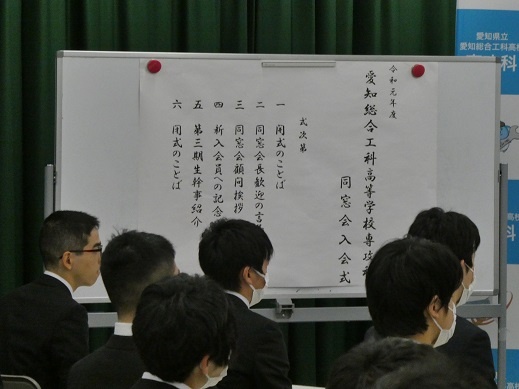 令和元年度
愛知総合工科高等学校専攻科
同窓会入会式
式次第
一 開式のことば
二 同窓会長歓迎の言
三 同窓会顧問挨拶
四 新入会員への記念
五 第三期生幹事紹介
六 閉式のことば
愛知県立
愛知総合工科高校
科